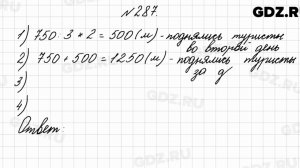 GDZ.R
№ 287.
1) 750 : 3 * 2 = 500 (м) - поднялись туристы
во второй день
2) 750 + 500 = 1250 (м) - поднялись туристы
за д
3)
4)
Ответ: